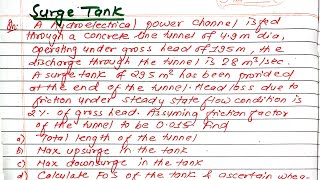 Surge Tank
Qn: A hydroelectrical power channel is fed
through a concrete the tunnel of 4.9 m dia,
operating under gross head of 195m, the
discharge through the tunnel is 28 m³/sec.
A surge tank of 295 m² has been provided
at the end of the tunnel. Head loss due to
friction under steady state flow condition is
2% of gross head. Assuming friction factor
of the tunnel to be 0.025 Find
a) Total length of the tunnel
b) Max upsurge in the tank
c) Max downsurge in the tank
d) Calculate FoS of the tank & ascertain